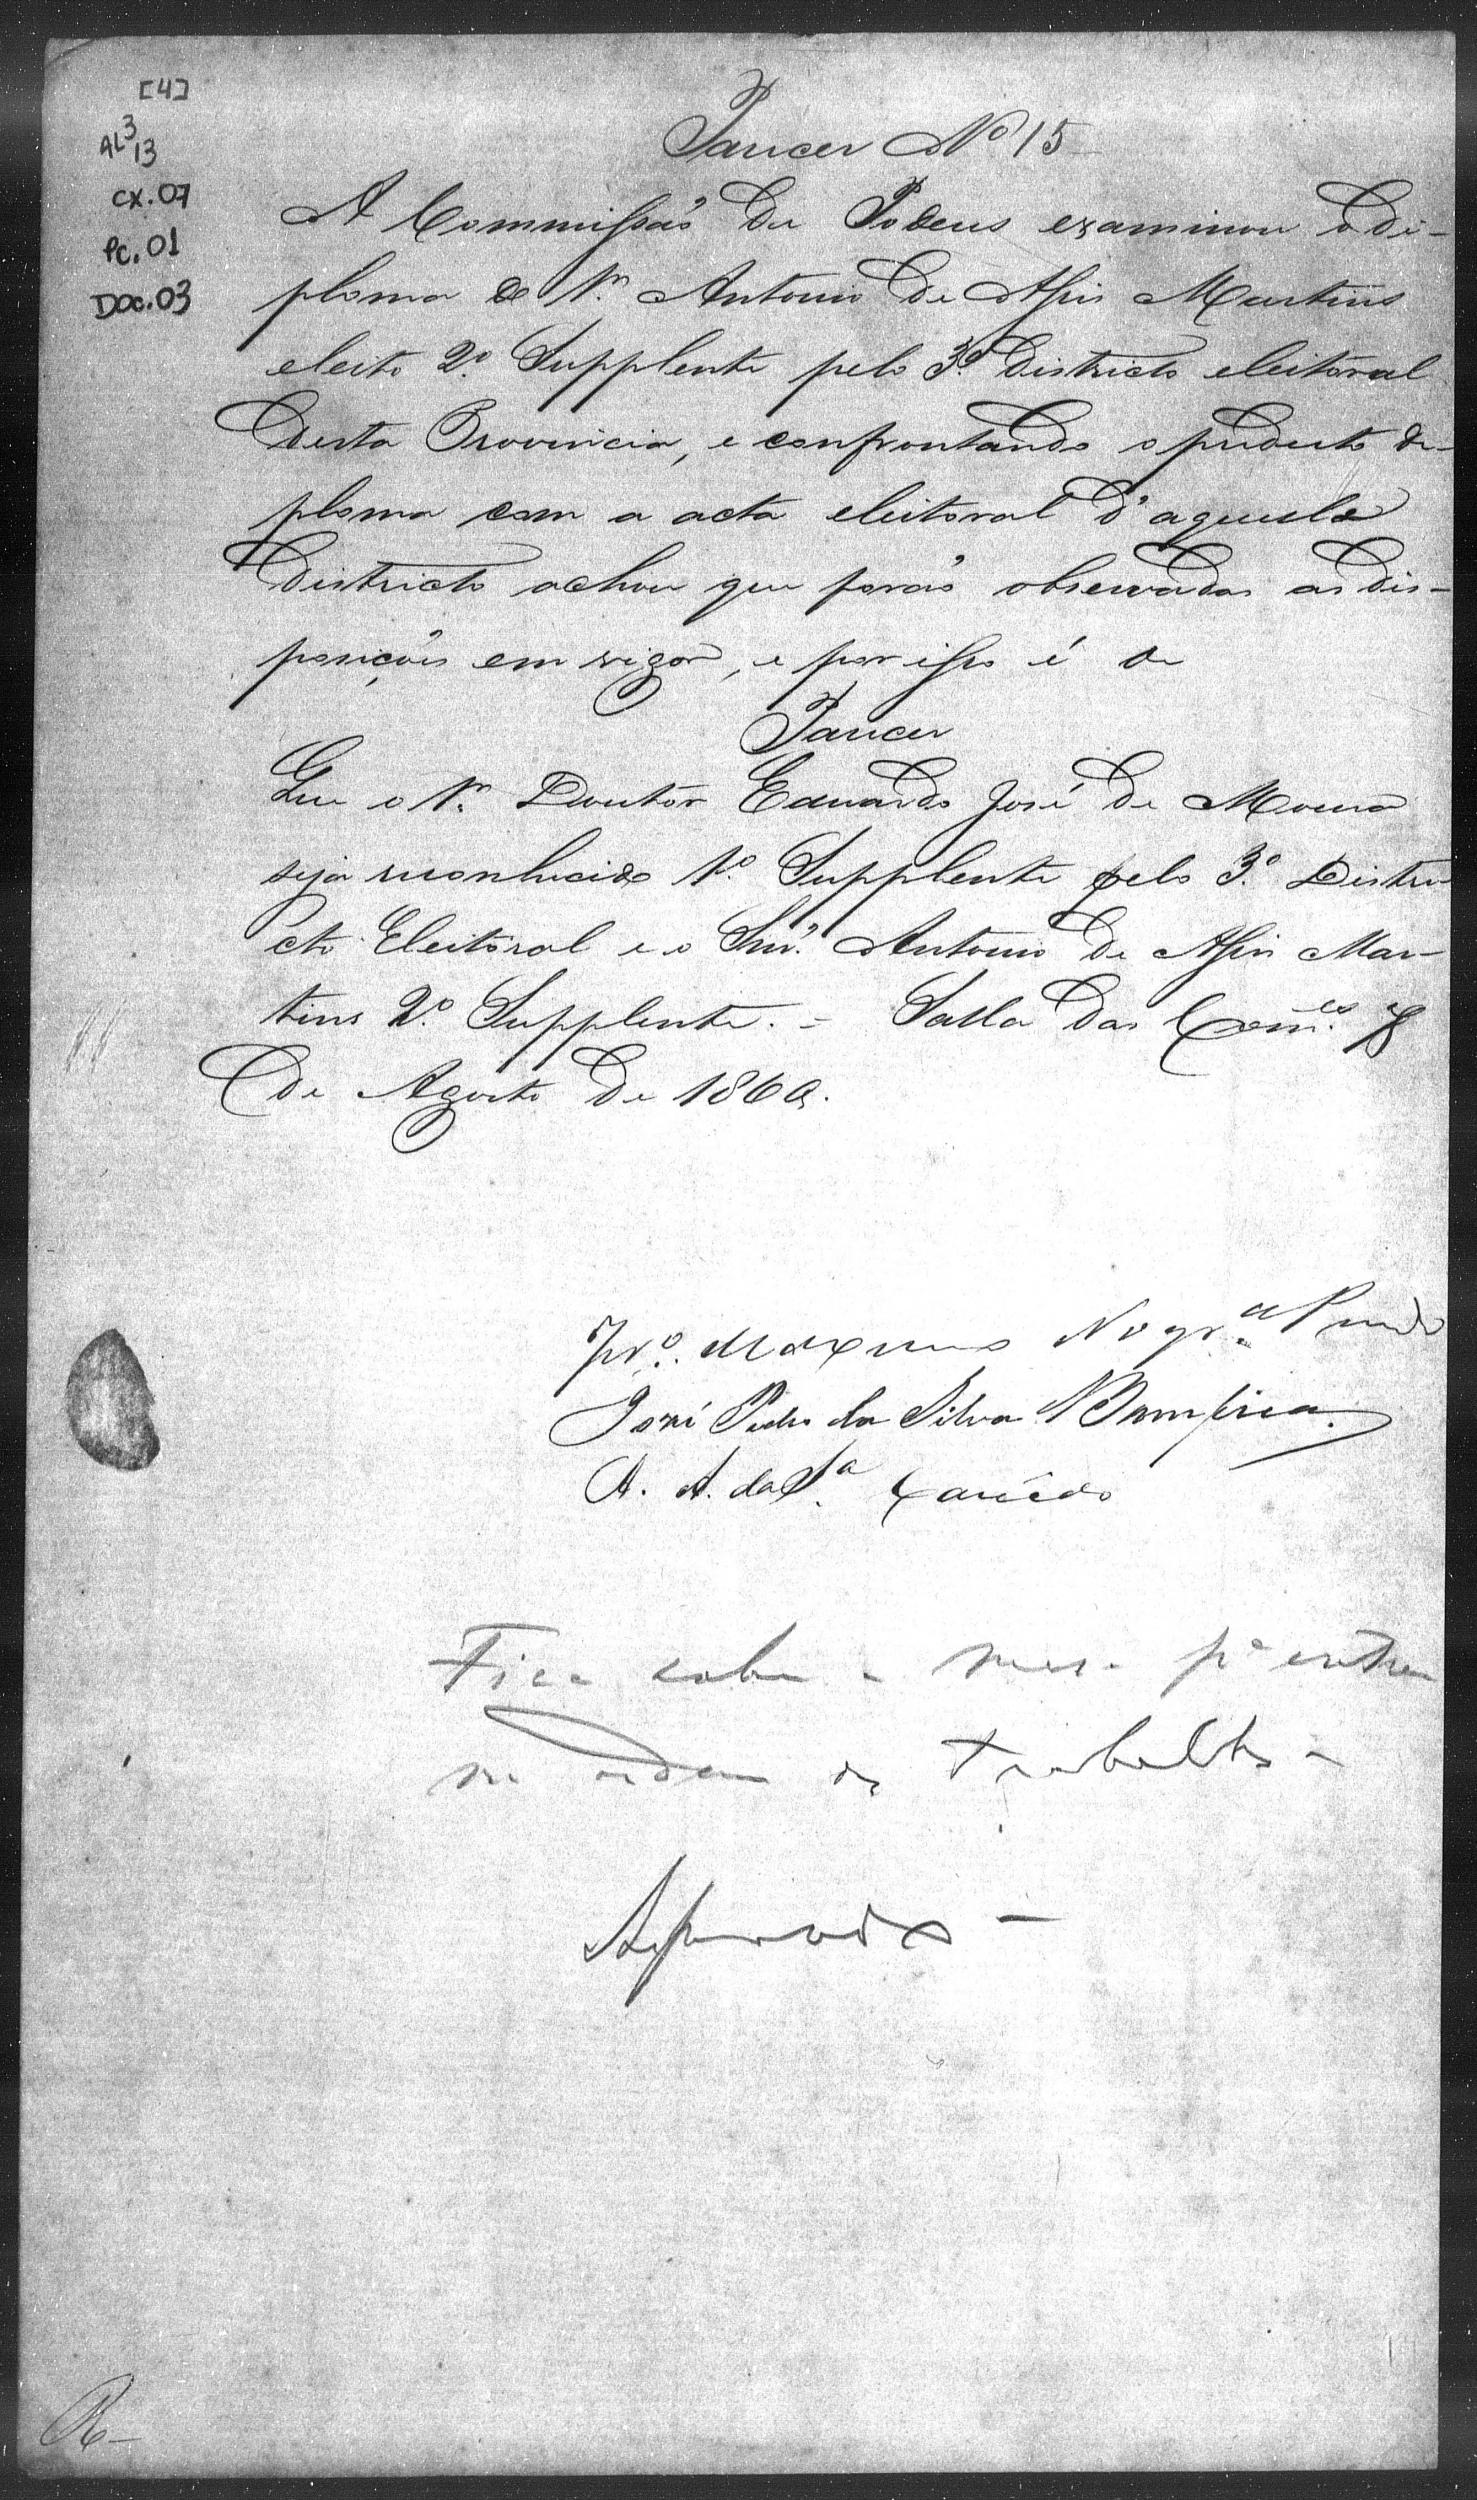 [4]
AL3
13
CX.07
PC.01
DOC.03
Parecer Nº 15
A Commissão de Poderes examinou o di-
ploma do Sr. Antonio de Assis Martins
eleito 2º. Supplente pelo 3º. Districto eleitoral
desta Provincia, e confrontando o predicto di-
ploma com a acta eleitoral d'aquele
Districto achou que forão observadas as dis-
posições em vigor, e por isso é de
Parecer
Que o Sr. Doutor Eduardo José de Moura
seja reconhecido 1º. Supplente pelo 3º. Distri-
cto Eleitoral e o Snr. Antonio de Assis Mar-
tins 2º. Supplente. = Salla das Com.es 8
de Agosto de 1860.
José Pedro da Silva Bemfica.
A. A. da S.a Canêdo
Fica sobre a mesa pª entrar
na ordem dos trabalhos -
Approvado -
R-